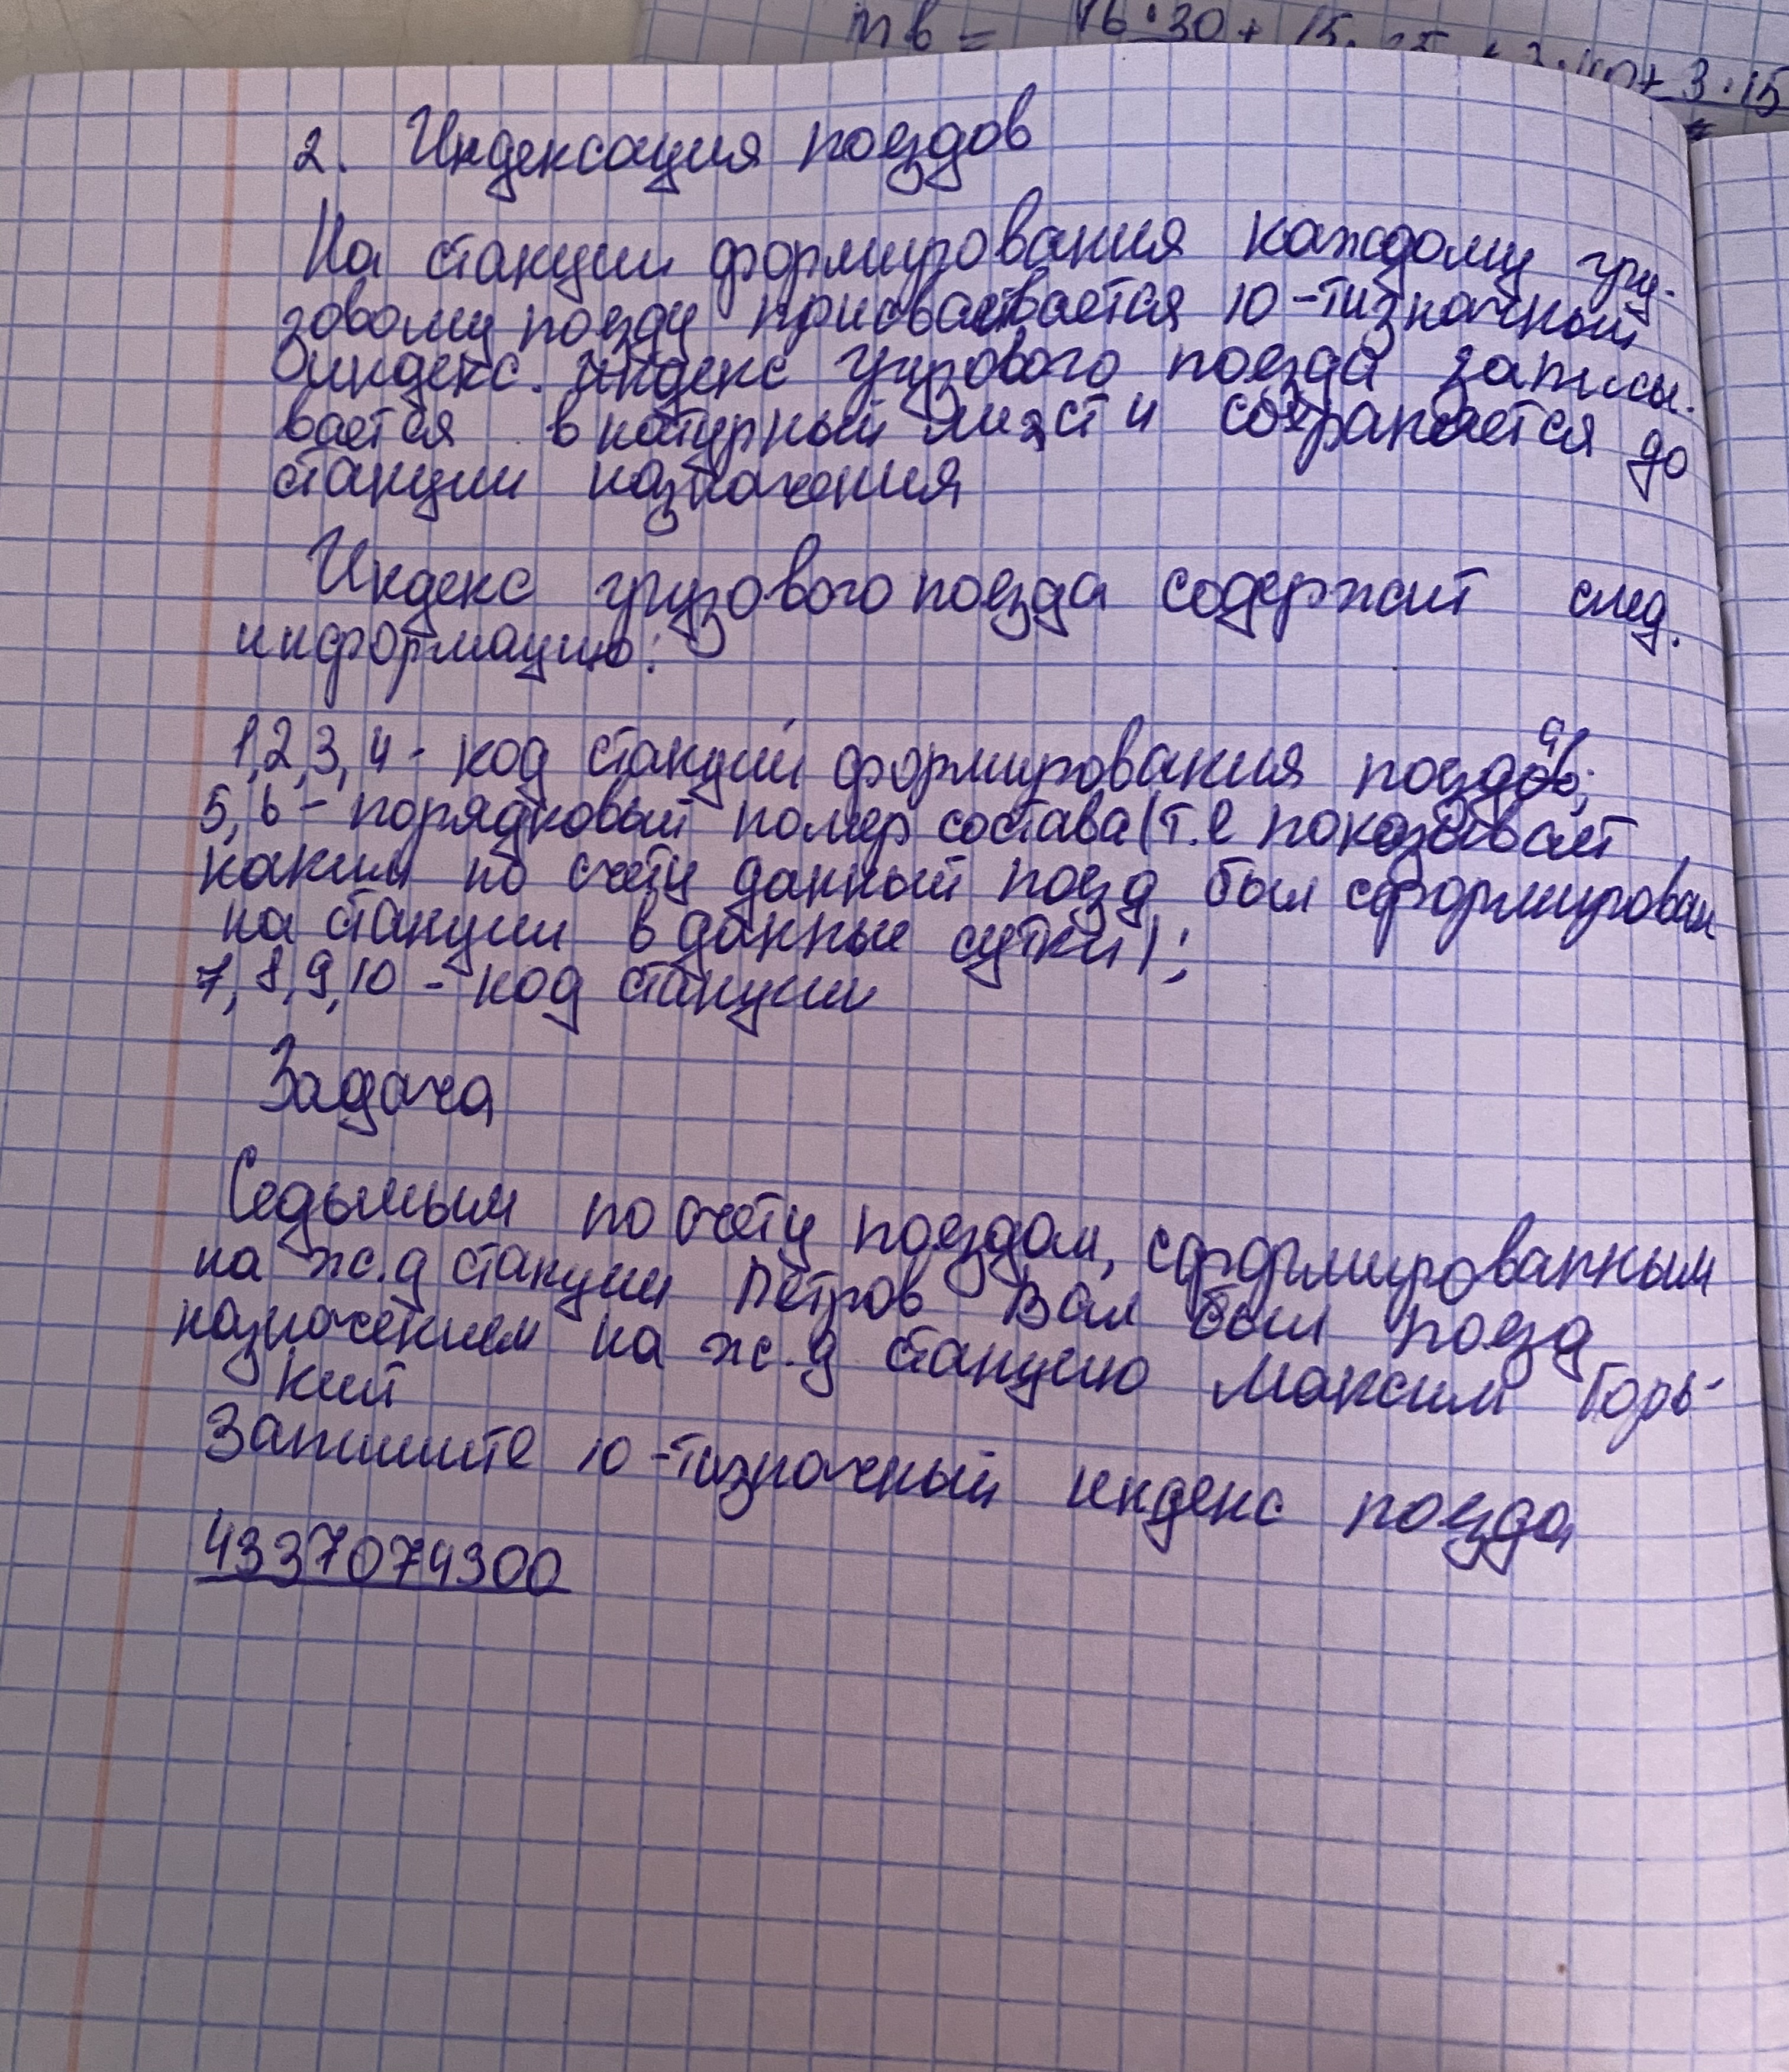 mв = 16·30 + 15· + 3·40 + 3·15
2. Индексация поездов
На станции формирования каждому гру-
зовому поезду присваевается 10-тизначный
индекс. Индекс грузового поезда записы-
вается в натурный лист и сохраняется до
станции назначения
Индекс грузового поезда содержит след.
информацию:
1,2,3,4 - код станций формирования поезда;
5,6 - порядковый номер состава (т.е показывает
каким по счету данный поезд был сформирован
на станции в данные сутки);
7,8,9,10 - код станции
Задача
Седьмым по счету поездом, сформированным
на ж.д станции Петров Вал был поезд
назначением на ж.д станцию Максим Горь-
кий
Запишите 10-тизначный индекс поезда
4337074300